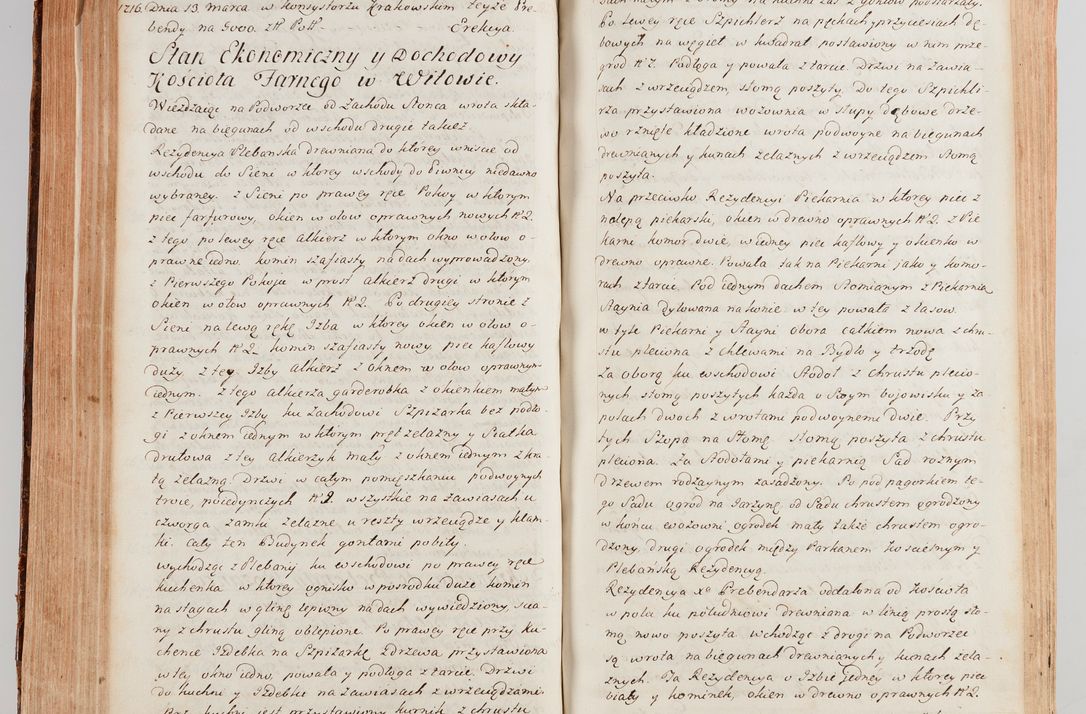 1716. Dnia 13 marca w konsystorzu Krakowskim teyże Pre-
bendy na 9000. złł Poll. Erekcya.
Stan Ekonomiczny y Dochodowy
Kościoła Farnego w Witowie.
Wieżdzaiąc na Podworzec od Zachodu Słonca wrota skła-
dane na biegunach od wschodu drugie takież.
Rezydencya Plebanska drewniana do ktorey wniście od
wschodu do Sieni w ktorey wschody do Piwnicy niedawno
wybraney. z Sieni po prawey ręce Pokoy w ktorym
piec farfurowy, okien w ołow oprawnych nowych N° 2.
z tego po lewey ręce alkierz w ktorym okno w ołow o-
prawne iedno. komin szafiasty na dach wyprowadzony.
z Pierwszego Pokoju w prost alkierz drugi w ktorym
okien w ołow oprawnych N° 2. Po drugiey stronie z
Sieni na lewą rękę Izba w ktorey okien w ołow o-
prawnych N° 2 komin szafiasty nowy piec kaflowy
duży z tey Izby alkierz z oknem w ołow oprawnym
iednym. z tego alkierza garderobka z okienkiem małym
z Pierwszey Izby ku Zachodowi Szpizarka bez podło-
gi z oknem iednym w ktorym pręt żelazny y Siatka
drutowa z tey alkierzyk mały z oknem iednym z kra-
tą żelazną. Drzwi w całym pomięszkaniu podwoynych
troie, poiedynczych N° 9. wszystkie na zawiasach u
czworga zamki żelazne u reszty wrzeciądze y klam-
ki. cały ten Budynek gontami pobity.
Wychodząc z Plebanij ku wschodowi po prawey ręce
kuchenka w ktorey ognisko w posrodku duże komin
na stagach w glinę lepiony na dach wywiedziony, scia-
ny z chrustu gliną oblepione. Po prawey ręce przy Ku-
chence Izdebka na Szpizarkę z drzewa przystawiona
w tey okno iedno, powała y podłoga z tarcic. Drzwi
do kuchni y Izdebki na zawiasach z wrzeciądzami.
Przy kuchni iest przystawiony kurnik z chrustu
Po lewey ręce Szpichlerz na pęckach y przyciesiach Dę-
bowych na węgieł w kwadrat postawiony w nim prze-
grod N° 7. Podłoga y powała z tarcic. Drzwi na zawia-
sach z wrzeciądzem, słomą poszyty. Do tego Szpichli-
rza przystawiona wozownia w słupy dębowe drze-
wo rznięte kładzione wrota podwoyne na biegunach
drewnianych y kunach żelaznych z wrzeciądzem słomą
poszyta.
Na przeciwko Rezydencyi Piekarnia w ktorey piec z
nalepą piekarski, okien w drewno oprawnych N° 2. z Pie-
karni komor dwie, w iedney piec kaflowy y okienko w
drewno oprawne. Powała tak na Piekarni jako y komo-
rach z tarcic. Pod iednym dachem słomianym z Piekarnią
Staynia Dylowana na konie. w tey powała z łasow.
w tyle Piekarni y Stayni obora całkiem nowa z chru-
stu pleciona z chlewami na Bydło y trzodę
Za oborą ku wschodowi Stodoł z chrustu plecio-
nych, słomą poszytych każda o Swym bojowisku y za-
polach dwoch z wrotami podwoynemi dwie. Przy
tych Szopa na słomę słomą poszyta z chrustu
pleciona. Za Stodołami y piekarnią Sad roznym
drzewem rodzaynym zasadzony. Po pod pagorkiem te-
go Sadu ogrod na Jarzynę od Sadu chrustem ogrodzony
w końcu wozowni ogrodek mały także chrustem ogro-
dzony, drugi ogrodek między Parkanem kościelnym y
Plebańską Rezydencyą.
Rezydencya Xa Prebendarza oddalona od Kościoła
w polu ku południowi drewniana w linią prostą sło-
mą nowo poszyta wchodząc z drogi na Podworzec
są wrota na biegunach drewnianych y kunach żela-
znych. Ta Rezydencya o Izbie jedney w ktorey piec
biały y kominek, okien w drewno oprawnych N° 2.